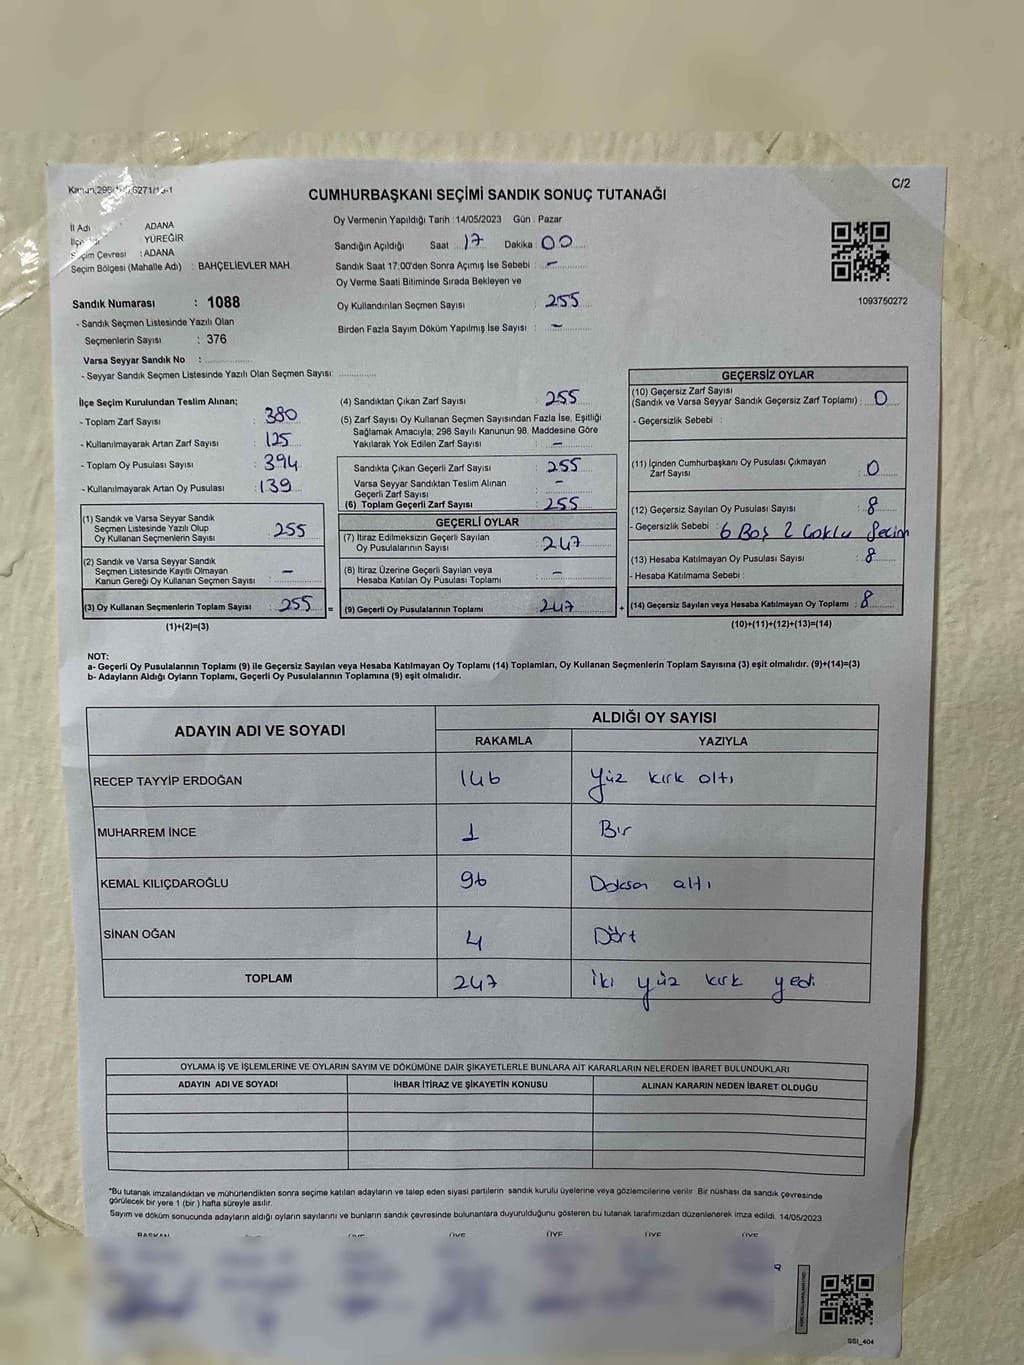 C/2
CUMHURBAŞKANI SEÇİMİ SANDIK SONUÇ TUTANAĞI
İl Adı ADANA
YÜREĞİR
Seçim Çevresi : ADANA
Seçim Bölgesi (Mahalle Adı) : BAHÇELİEVLER MAH.
Oy Vermenin Yapıldığı Tarih : 14/05/2023 Gün : Pazar
Sandığın Açıldığı Saat : 17 Dakika : 00
Sandık Saat 17:00'den Sonra Açımış İse Sebebi : -
Oy Verme Saati Bitiminde Sırada Bekleyen ve
Oy Kullandırılan Seçmen Sayısı : 255
Birden Fazla Sayım Döküm Yapılmış İse Sayısı : -
1093750272
Sandık Numarası : 1088
- Sandık Seçmen Listesinde Yazılı Olan
Seçmenlerin Sayısı : 376
Varsa Seyyar Sandık No :
- Seyyar Sandık Seçmen Listesinde Yazılı Olan Seçmen Sayısı:
İlçe Seçim Kurulundan Teslim Alınan;
- Toplam Zarf Sayısı : 380
- Kullanılmayarak Artan Zarf Sayısı : 125
- Toplam Oy Pusulası Sayısı : 394
- Kullanılmayarak Artan Oy Pusulası : 139
(1) Sandık ve Varsa Seyyar Sandık
Seçmen Listesinde Yazılı Olup
Oy Kullanan Seçmenlerin Sayısı : 255
(2) Sandık ve Varsa Seyyar Sandık
Seçmen Listesinde Kayıtlı Olmayan
Kanun Gereği Oy Kullanan Seçmen Sayısı : -
(3) Oy Kullanan Seçmenlerin Toplam Sayısı : 255
(1)+(2)=(3)
(4) Sandıktan Çıkan Zarf Sayısı : 255
(5) Zarf Sayısı Oy Kullanan Seçmen Sayısından Fazla İse, Eşitliği
Sağlamak Amacıyla; 298 Sayılı Kanunun 98. Maddesine Göre
Yakılarak Yok Edilen Zarf Sayısı : -
Sandıkta Çıkan Geçerli Zarf Sayısı : 255
Varsa Seyyar Sandıktan Teslim Alınan
Geçerli Zarf Sayısı : -
(6) Toplam Geçerli Zarf Sayısı : 255
GEÇERLİ OYLAR
(7) İtiraz Edilmeksizin Geçerli Sayılan
Oy Pusulalarının Sayısı : 247
(8) İtiraz Üzerine Geçerli Sayılan veya
Hesaba Katılan Oy Pusulası Toplamı : -
= (9) Geçerli Oy Pusulalarının Toplamı : 247 +
GEÇERSİZ OYLAR
(10) Geçersiz Zarf Sayısı
(Sandık ve Varsa Seyyar Sandık Geçersiz Zarf Toplamı) : 0
- Geçersizlik Sebebi :
(11) İçinden Cumhurbaşkanı Oy Pusulası Çıkmayan
Zarf Sayısı : 0
(12) Geçersiz Sayılan Oy Pusulası Sayısı : 8
- Geçersizlik Sebebi : 6 Boş 2 Çoklu Seçim
(13) Hesaba Katılmayan Oy Pusulası Sayısı : 8
- Hesaba Katılmama Sebebi :
(14) Geçersiz Sayılan veya Hesaba Katılmayan Oy Toplamı : 8
(10)+(11)+(12)+(13)=(14)
NOT:
a- Geçerli Oy Pusulalarının Toplamı (9) ile Geçersiz Sayılan veya Hesaba Katılmayan Oy Toplamı (14) Toplamları, Oy Kullanan Seçmenlerin Toplam Sayısına (3) eşit olmalıdır. (9)+(14)=(3)
b- Adayların Aldığı Oyların Toplamı, Geçerli Oy Pusulalarının Toplamına (9) eşit olmalıdır.
ADAYIN ADI VE SOYADI ALDIĞI OY SAYISI
RAKAMLA YAZIYLA
RECEP TAYYİP ERDOĞAN 146 Yüz kırk altı
MUHARREM İNCE 1 Bir
KEMAL KILIÇDAROĞLU 96 Doksan altı
SİNAN OĞAN 4 Dört
TOPLAM 247 İki yüz kırk yedi
OYLAMA İŞ VE İŞLEMLERİNE VE OYLARIN SAYIM VE DÖKÜMÜNE DAİR ŞİKAYETLERLE BUNLARA AİT KARARLARIN NELERDEN İBARET BULUNDUKLARI
ADAYIN ADI VE SOYADI İHBAR İTİRAZ VE ŞİKAYETİN KONUSU ALINAN KARARIN NEDEN İBARET OLDUĞU
*Bu tutanak imzalandıktan ve mühürlendikten sonra seçime katılan adayların ve talep eden siyasi partilerin sandık kurulu üyelerine veya gözlemcilerine verilir. Bir nüshası da sandık çevresinde
görülecek bir yere 1 (bir) hafta süreyle asılır.
Sayım ve döküm sonucunda adayların aldığı oyların sayılarını ve bunların sandık çevresinde bulunanlara duyurulduğunu gösteren bu tutanak tarafımızdan düzenlenerek imza edildi. 14/05/2023
BAŞKAN ÜYE ÜYE ÜYE ÜYE ÜYE
SSI_404